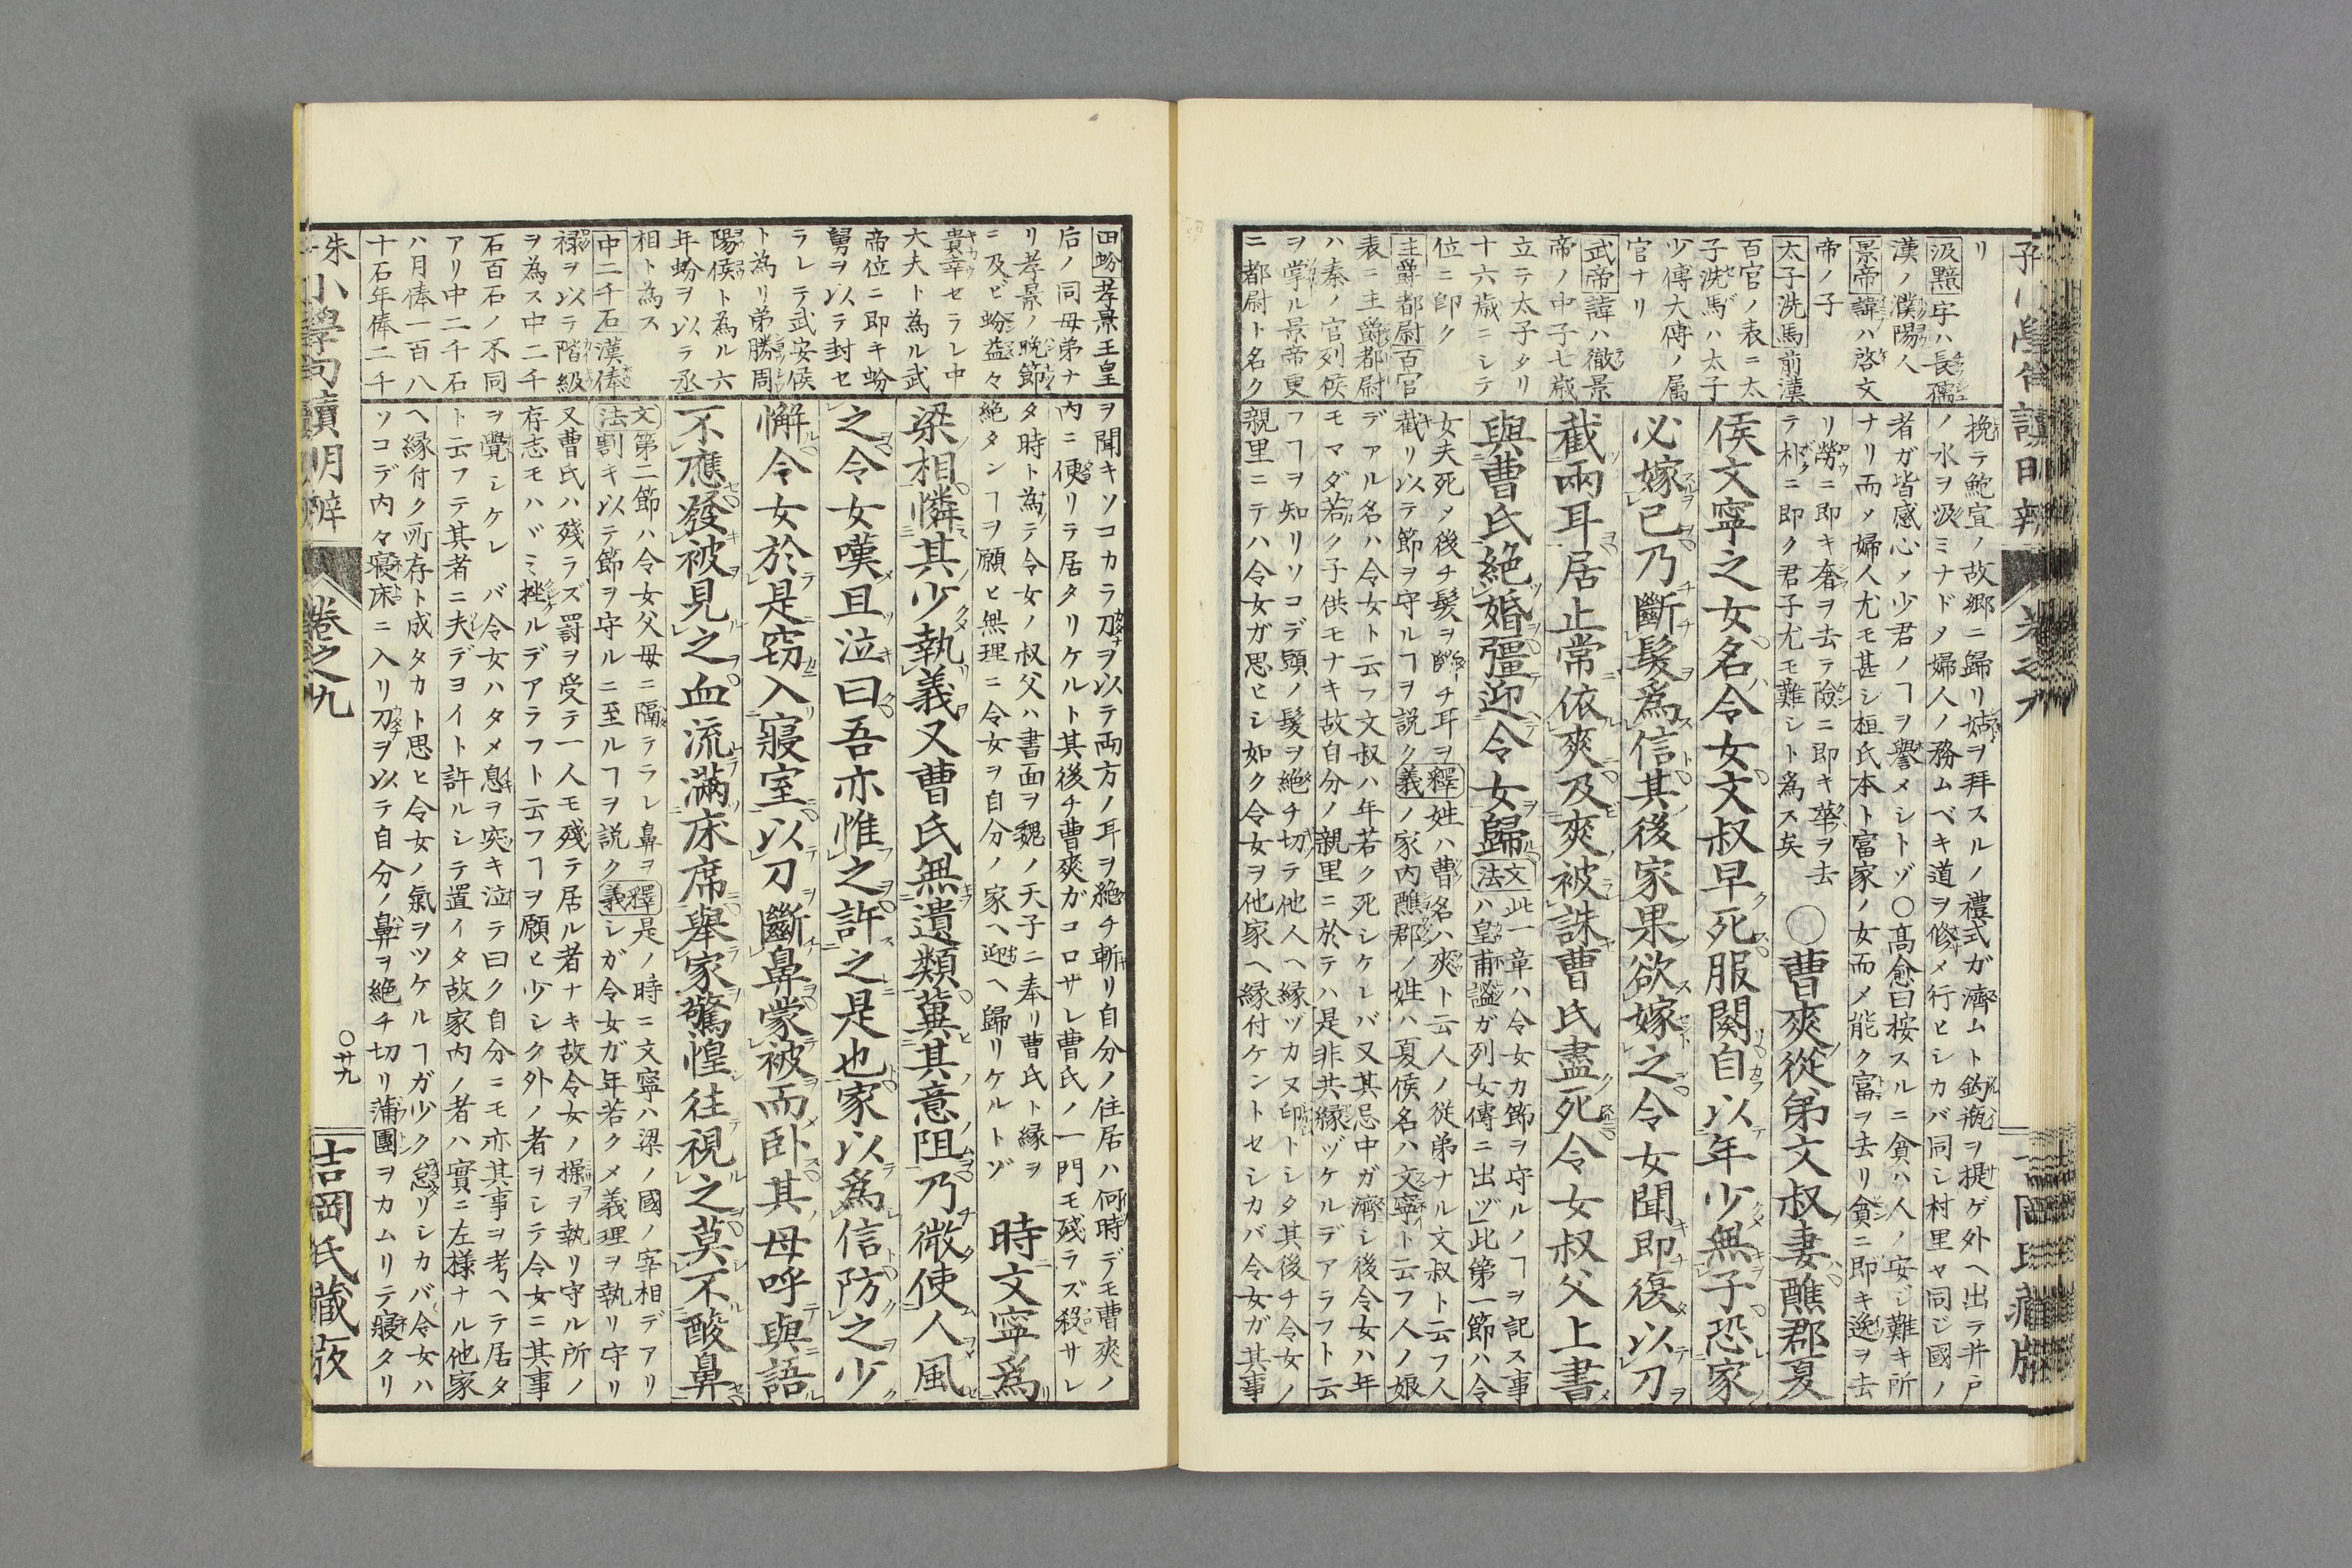 リ
汲黯字ハ長孺
漢ノ濮陽人
景帝諱ハ啓文
帝ノ子
太子洗馬前漢
百官ノ表ニ太
子洗馬ハ太子
少傅大傅ノ属
官ナリ
武帝諱ハ徹景
帝ノ中子七歳
立テ太子タリ
十六歳ニシテ
位ニ即ク
主爵都尉百官
表ニ主爵都尉
ハ秦ノ官列侯
ヲ掌ル景帝更
ニ都尉ト名ク
挽テ鮑宣ノ故郷ニ歸リ姑ヲ拜スルノ禮式ガ濟ムト釣瓶ヲ提ゲ外ヘ出テ井戸
ノ水ヲ汲ミナドメ婦人ノ務ムベキ道ヲ修メ行ヒシカバ同シ村里ヤ同ジ國ノ
者ガ皆感心メ少君ノヿヲ譽メシトゾ○高愈曰按スルニ貧ハ人ノ安ジ難キ所
ナリ而メ婦人尤モ甚シ桓氏本ト富家ノ女而メ能ク富ヲ去リ貧ニ即キ逸ヲ去
リ勞ニ即キ奢ヲ去テ險ニ即キ華ヲ去
テ朴ニ即ク君子尤モ難シト為ス矣
○曹爽從弟文叔妻譙郡夏
侯文寧之女名令女文叔早死服闋自以年少無子恐家
必嫁己乃斷髮爲信其後家果欲嫁之令女聞即復以刀
截兩耳居止常依爽及爽被誅曹氏盡死令女叔父上書
與曹氏絶婚彊迎令女歸
文法此一章ハ令女カ節ヲ守ルノヿヲ記ス事
ハ皇甫謐ガ列女傳ニ出ヅ」此第一節ハ令
女夫死メ後チ髮ヲ斷チ耳ヲ
截リ以テ節ヲ守ルヿヲ説ク
釋義姓ハ曹名ハ爽ト云人ノ従弟ナル文叔ト云フ人
ノ家内譙郡ノ姓ハ夏侯名ハ文寧ト云フ人ノ娘
デアル名ハ令女ト云フ文叔ハ年若ク死シケレバ又其忌中ガ濟シ後令女ハ年
モマダ若ク子供モナキ故自分ノ親里ニ於テハ是非共縁ヅケルデアラフト云
フヿヲ知リソコデ頭ノ髮ヲ絶チ切テ他人ヘ縁ヅカヌ印トシタ其後チ令女ノ
親里ニテハ令女ガ思ヒシ如ク令女ヲ他家ヘ縁付ケントセシカバ令女ガ其事
田蚡孝景王皇
后ノ同母弟ナ
リ孝景ノ晩節
ニ及ビ蚡益々
貴幸セラレ中
大夫ト為ル武
帝位ニ即キ蚡
舅ヲ以テ封セ
ラレテ武安侯
ト為リ弟勝周
陽侯ト為ル六
年蚡ヲ以テ丞
相ト為ス
中二千石漢俸
禄ヲ以テ階級
ヲ為ス中二千
石百石ノ不同
アリ中二千石
ハ月俸一百八
十石年俸二千
ヲ聞キソコカラ刀ヲ以テ両方ノ耳ヲ絶チ斬リ自分ノ住居ハ何時デモ曹爽ノ
内ニ便リテ居タリケルト其後チ曹爽ガコロサレ曹氏ノ一門モ残ラズ殺サレ
タ時ト為テ令女ノ叔父ハ書面ヲ魏ノ天子ニ奉リ曹氏ト縁ヲ
絶タンヿヲ願ヒ無理ニ令女ヲ自分ノ家ヘ迎ヘ歸リケルトゾ
時文寧爲
梁相憐其少執義又曹氏無遺類冀其意阻乃微使人風
之令女嘆且泣曰吾亦惟之許之是也家以爲信防之少
懈令女於是竊入寢室以刀斷鼻蒙被而卧其母呼與語
不應發被見之血流滿床席舉家驚惶往視之莫不酸鼻
文法第二節ハ令女父母ニ隔テラレ鼻ヲ
割キ以テ節ヲ守ルニ至ルヿヲ説ク
釋義是ノ時ニ文寧ハ梁ノ國ノ宰相デアリ
シガ令女ガ年若クメ義理ヲ執リ守リ
又曹氏ハ残ラズ罸ヲ受テ一人モ殘テ居ル者ナキ故令女ノ操ヲ執リ守ル所ノ
存志モハヾミ挫ルデアラフト云フヿヲ願ヒ少シク外ノ者ヲシテ令女ニ其事
ヲ覺シケレバ令女ハタメ息ヲ突キ泣テ曰ク自分ニモ亦其事ヲ考ヘテ居タ
ト云フテ其者ニ夫デヨイト許ルシテ置イタ故家内ノ者ハ實ニ左様ナル他家
ヘ縁付ク所存ト成タカト思ヒ令女ノ氣ヲツケルヿガ少ク怠ダリシカバ令女ハ
ソコデ内々寝床ニ入リ刀ヲ以テ自分ノ鼻ヲ絶チ切リ蒲團ヲカムリテ寢タリ
朱子小學句讀明辨
卷之九
○廿九
吉岡氏藏版